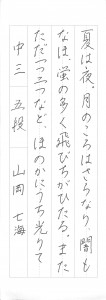 夏は夜。月のころはさらなり、闇も
なほ、蛍のあく飛びちがひたる。また
ただ一つ二つなど、ほのかにうち光りて
中三 五段 山岡 七海